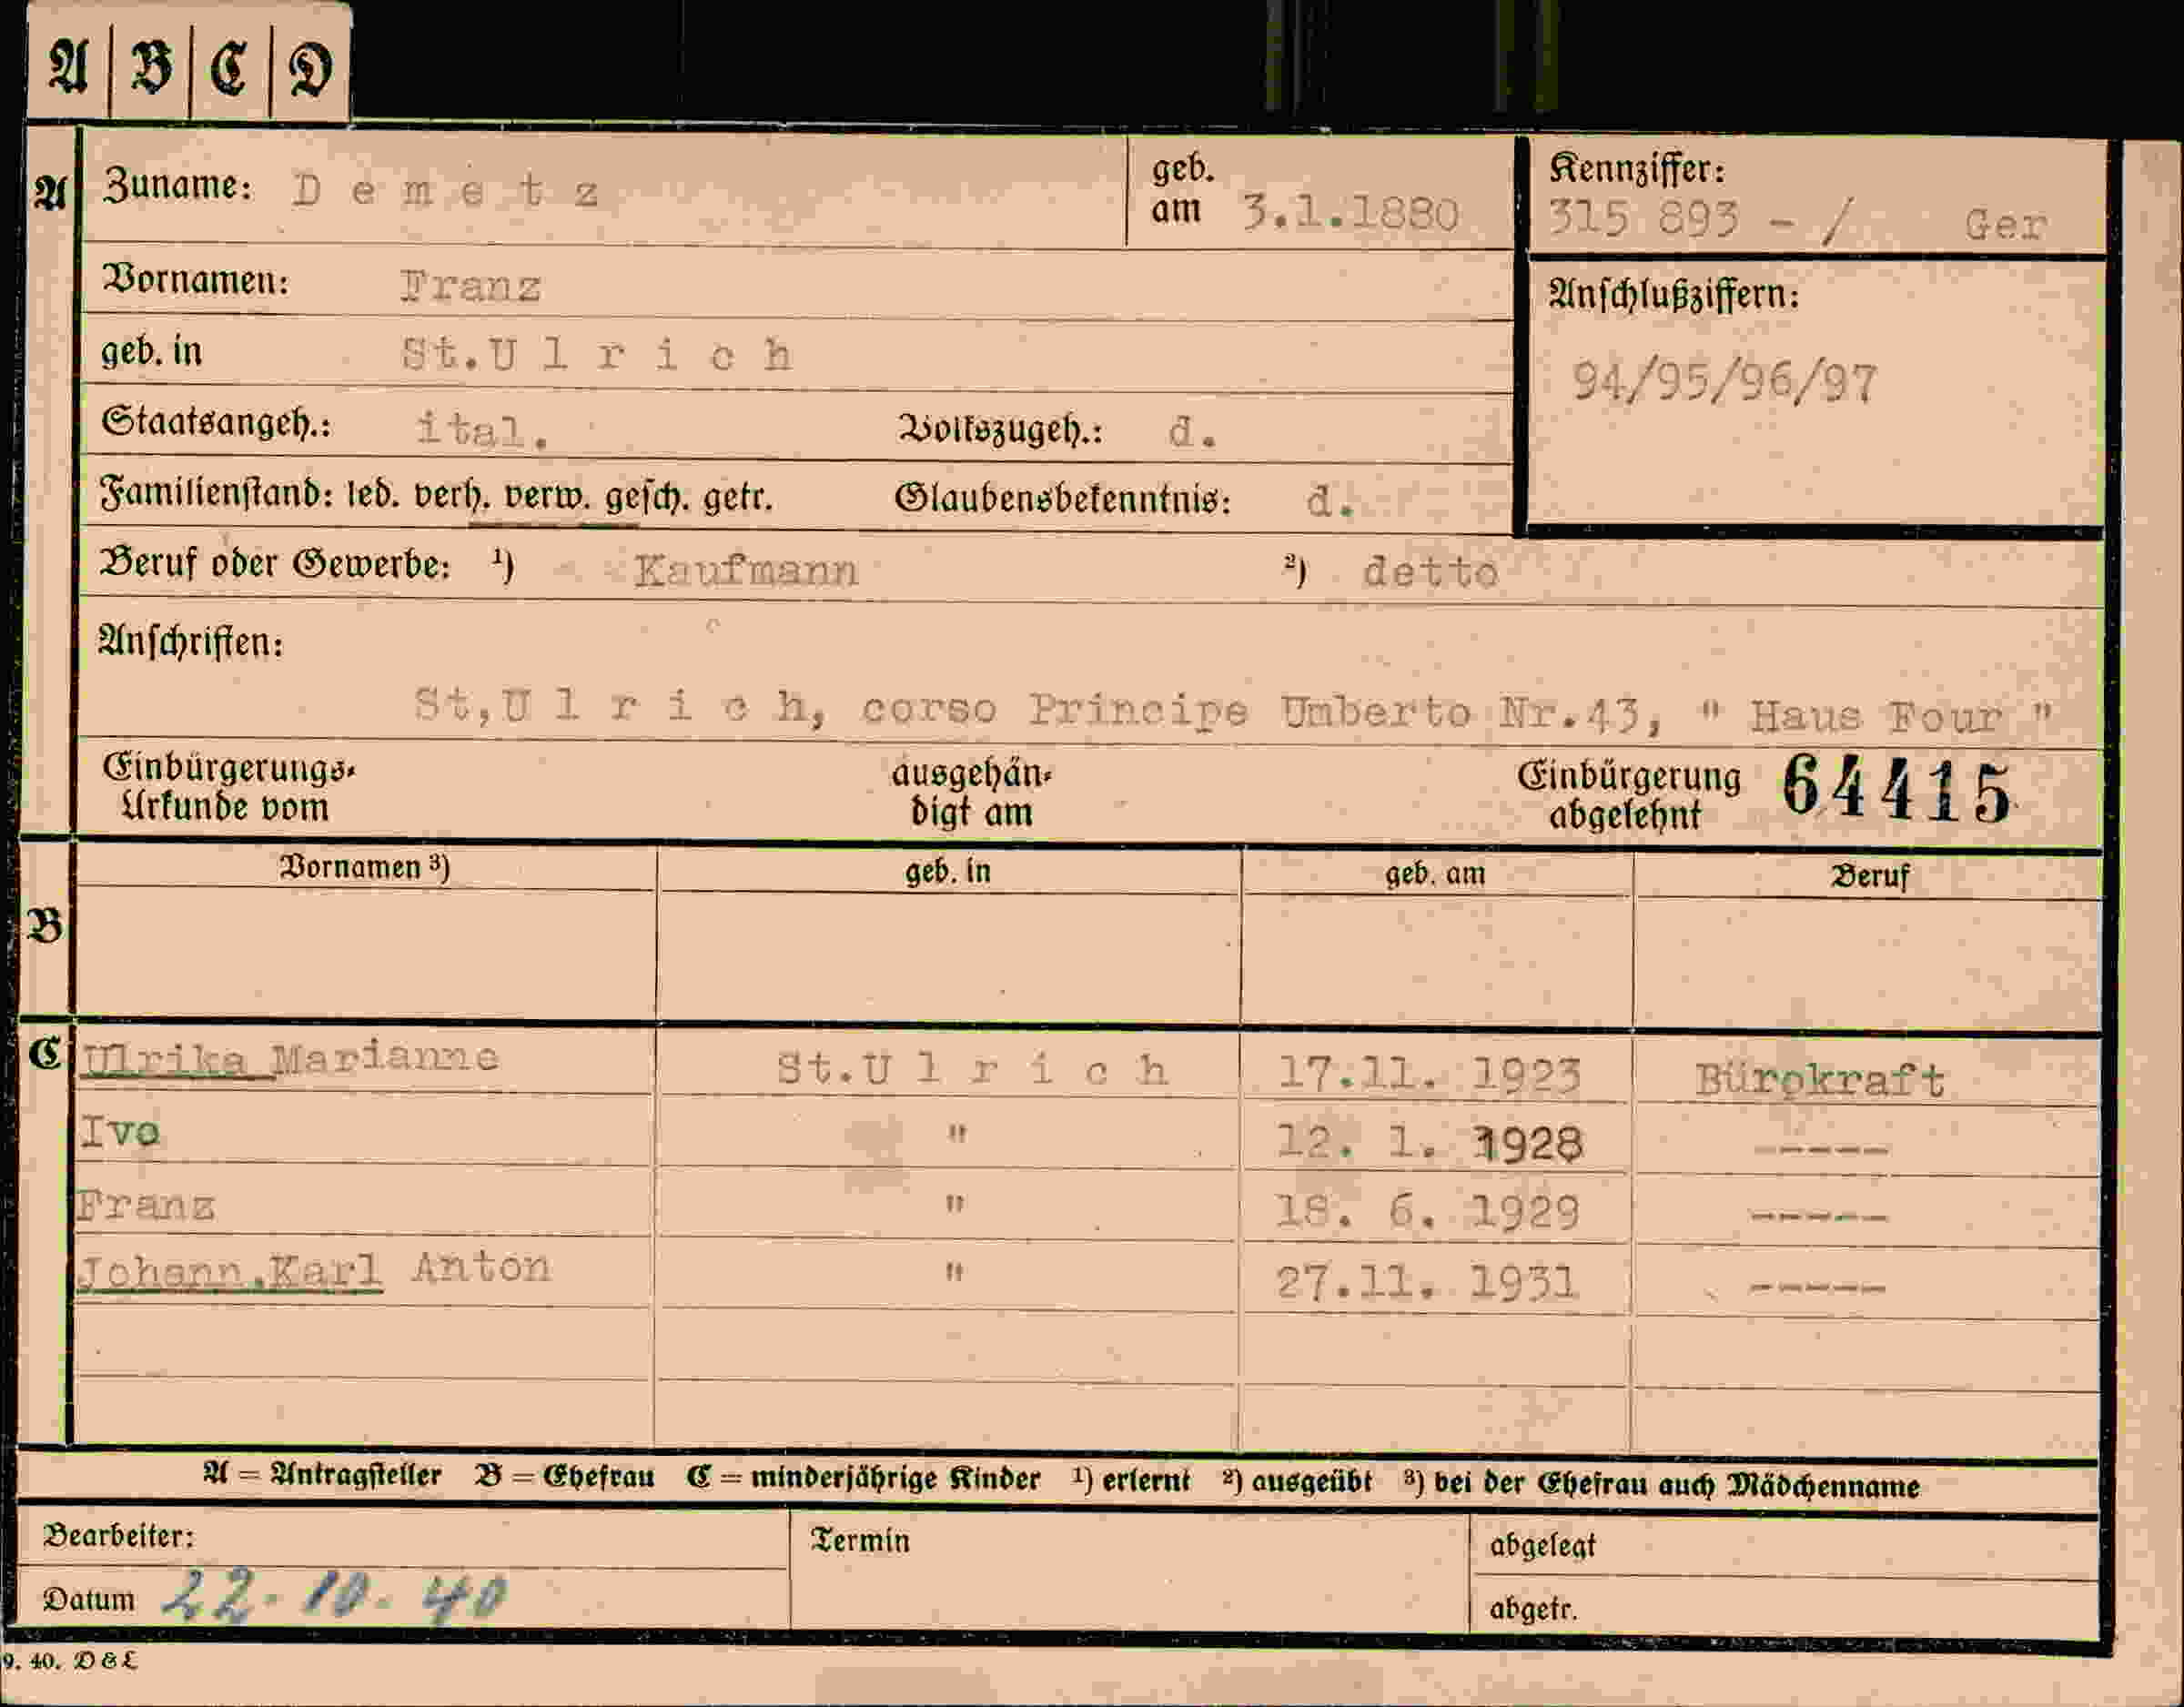 A | B | C | D
A Zuname: D e m e t z geb. am 3.1.1880 Kennziffer: 315 893 - / Ger
Vornamen: Franz
Anschlußziffern:
geb. in St.U l r i c h
94/95/96/97
Staatsangeh.: ital. Volkszugeh.: d.
Familienstand: led. verh. verw. gesch. getr. Glaubensbekenntnis: d.
Beruf oder Gewerbe: ¹) Kaufmann ²) detto
Anschriften:
St,U l r i c h, corso Principe Umberto Nr.43, " Haus Four "
Einbürgerungs- ausgehän- Einbürgerung 64415
Urkunde vom digt am abgelehnt
Vornamen ³) geb. in geb. am Beruf
B
C Ulrika Marianne St.U l r i c h 17.11. 1923 Bürokraft
Ivo " 12. 1. 1928 -----
Franz " 18. 6. 1929 -----
Johann.Karl Anton " 27.11. 1931 -----
A = Antragsteller B = Ehefrau C = minderjährige Kinder ¹) erlernt ²) ausgeübt ³) bei der Ehefrau auch Mädchenname
Bearbeiter: Termin abgelegt
Datum 22. 10. 40 abgetr.
9. 40. D & L